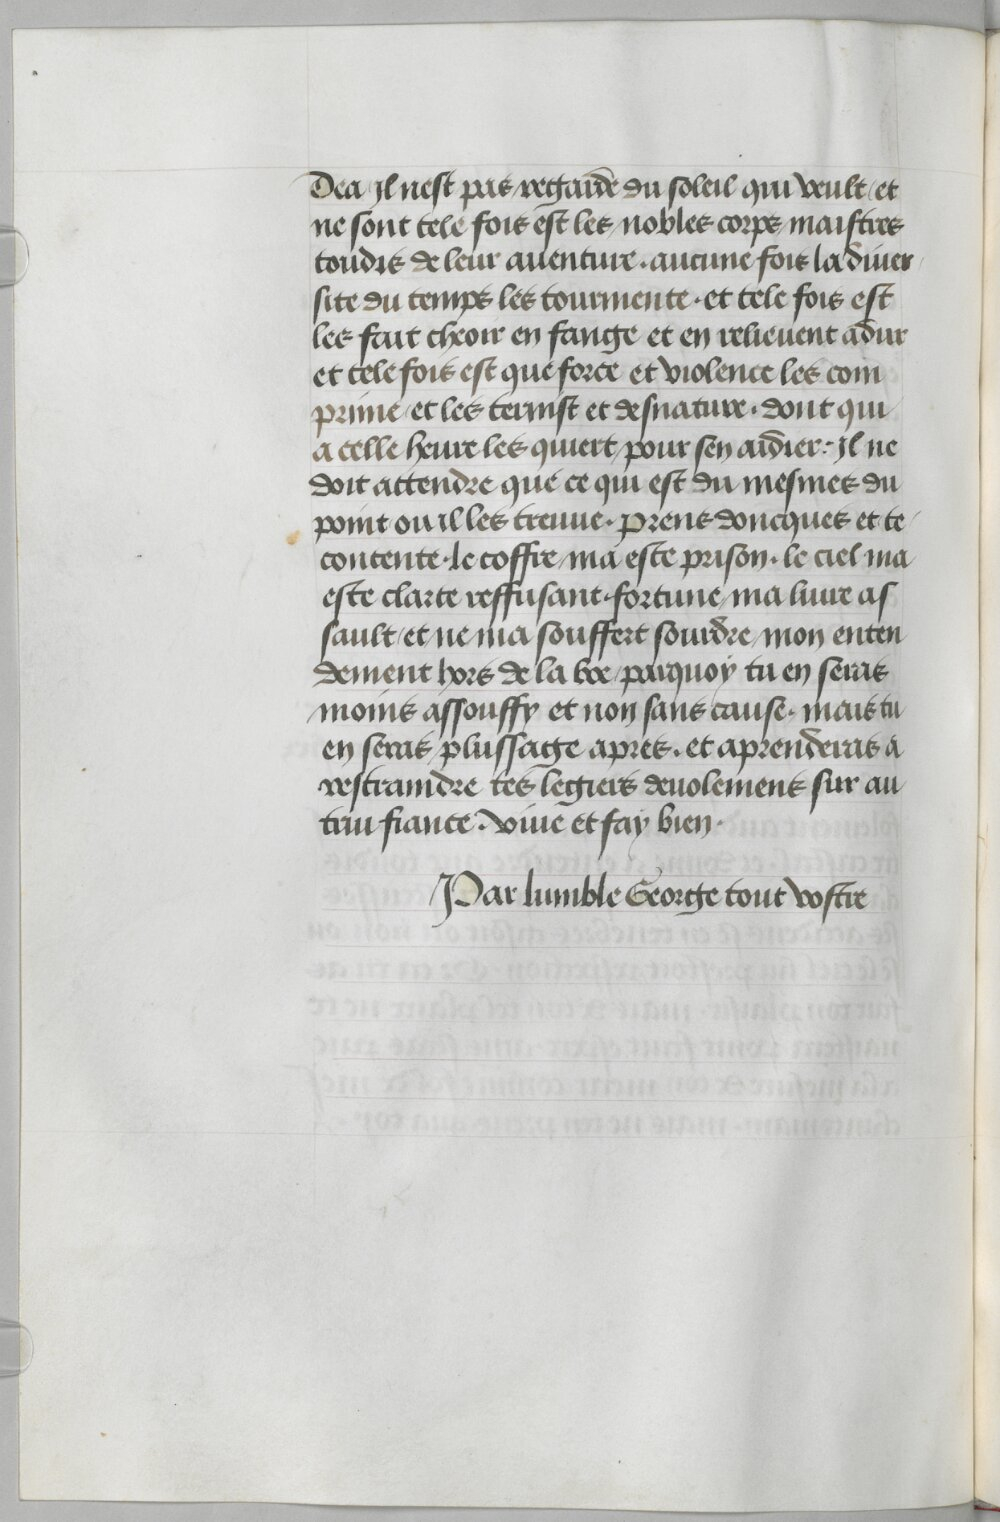 Dea Il nest pas regarde du soleil qui veult / et
ne sont tele fois est les nobles corps maistres
toudis de leur auenture . aucune fois la diuer
site du temps les tourmente . et tele fois est
les fait cheoir en fange et en relieuent a dur
et tele fois est que force et violence les com
prime / et les ternist et desnature . dont qui
a celle heure les quiert / pour sen aidier : Il ne
doit attendre que ce qui est du mesmes du
point ou il les treuue . Prens doncques et te
contente . le coffre ma este prison . le ciel ma
este clarte reffusant . fortune ma liure as
sault / et ne ma souffert sourdre mon enten
dement hors de la boe / parquoy tu en seras
moins assouffy et non sans cause . mais tu
en seras plussage apres . et aprenderas a
restraindre tes legiers deuolemens sur au
trui fiance . viue et fay bien .
Par lumble George tout vostre